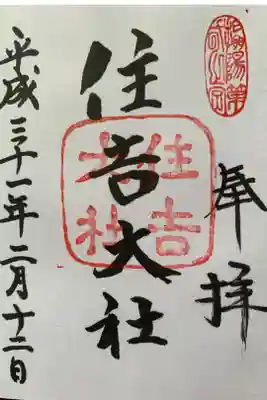 奉拝
住吉大社
住吉
大社
平成三十一年二月十二日